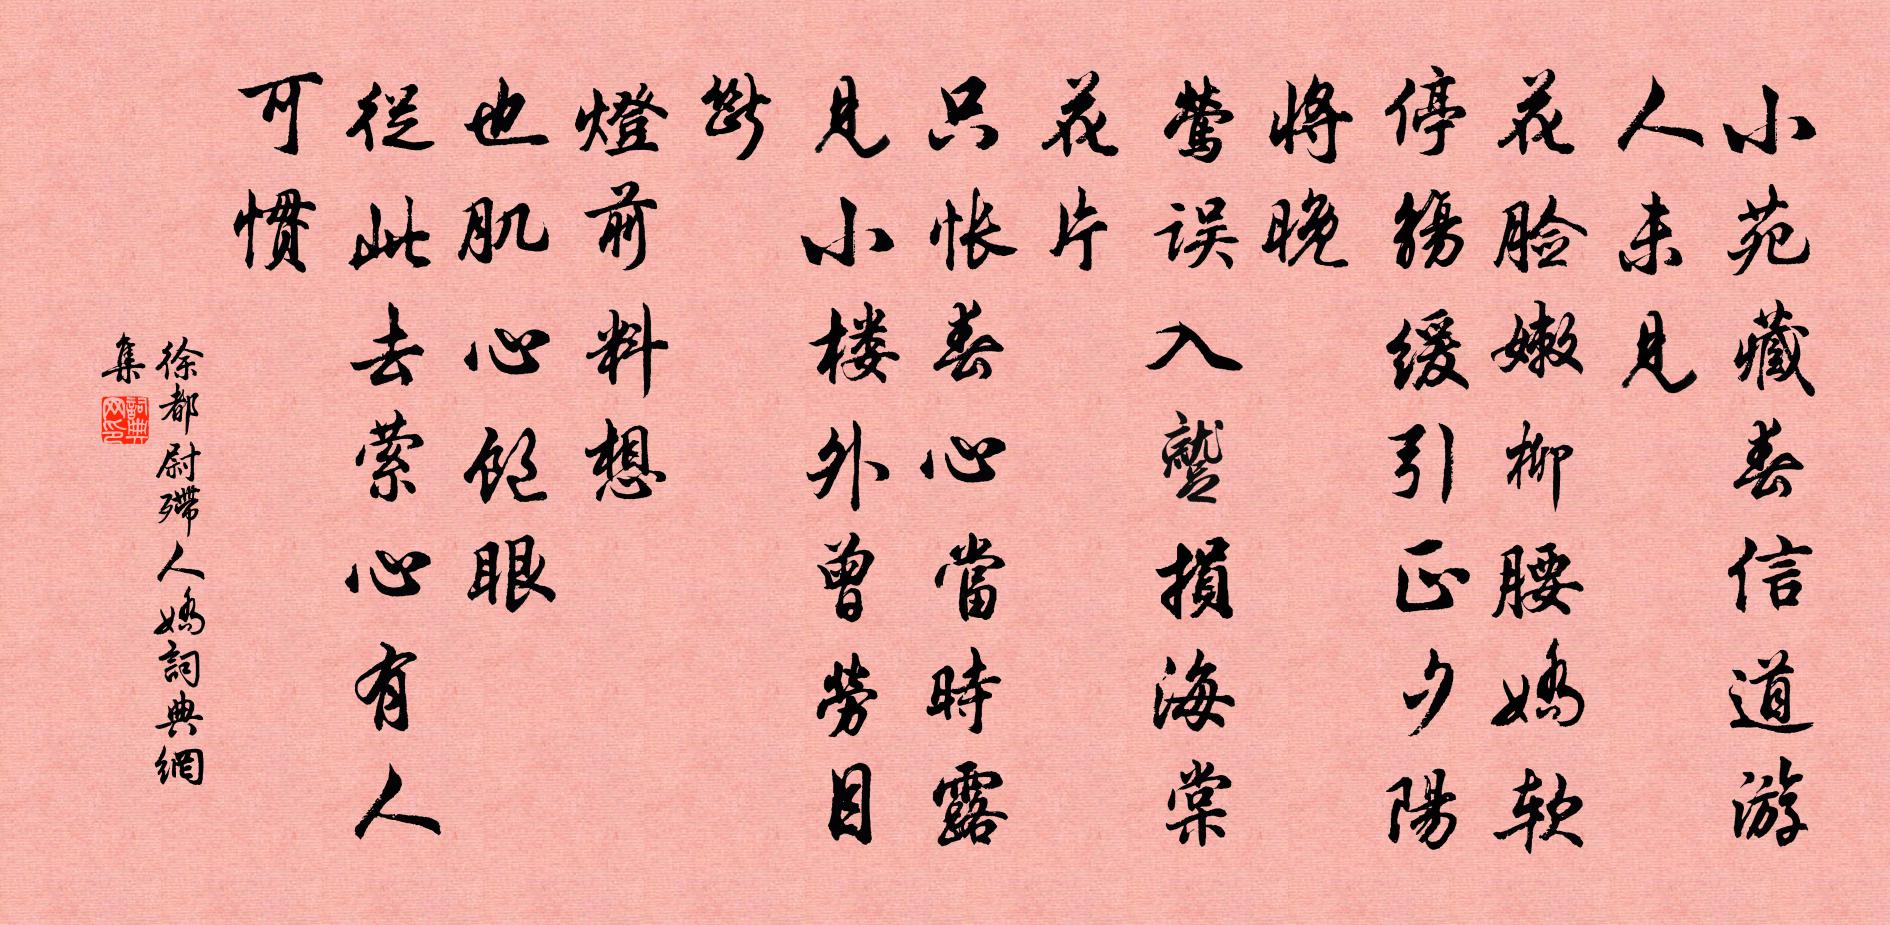 小苑藏春信道游
人未見
花脸嫩柳腰嬌软
停觴缓引正夕陽
將晚
鶯误入蹔損海棠
花片
只怅春心當時露
見小楼外曾勞目
斷
燈前料想
也肌心飽眼
從此去萦心有人
可慣
徐都尉殢人嬌詞典網
集
詞典网印